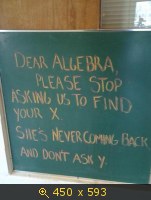 DEAR ALGEBRA,
PLEASE STOP
ASKING US TO FIND
YOUR X.
SHE'S NEVER COMING BACK
AND DON'T ASK Y.
450 x 593